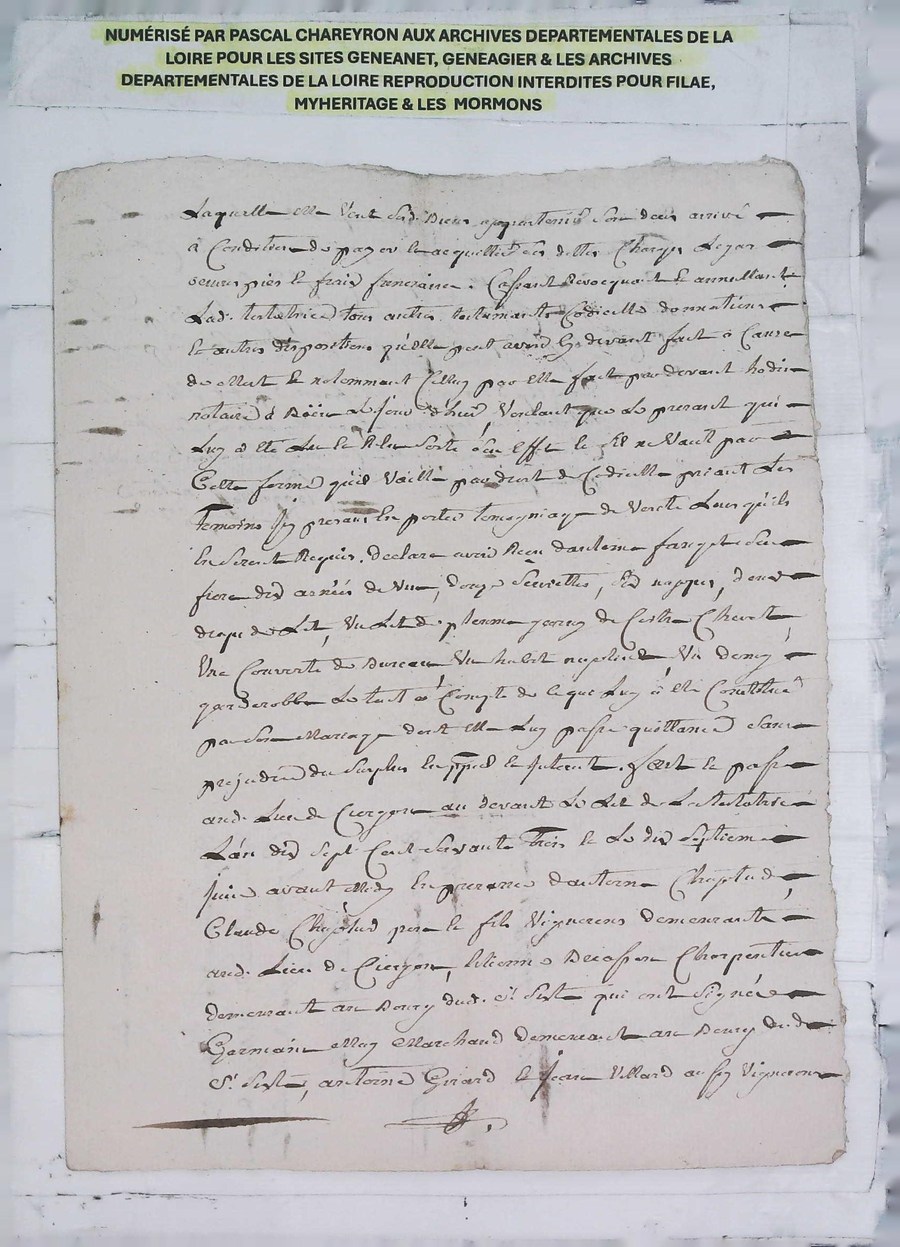 NUMÉRISÉ PAR PASCAL CHAREYRON AUX ARCHIVES DEPARTEMENTALES DE LA
LOIRE POUR LES SITES GENEANET, GENEAGIER & LES ARCHIVES
DEPARTEMENTALES DE LA LOIRE REPRODUCTION INTERDITES POUR FILAE,
MYHERITAGE & LES MORMONS
Laquelle elle veut sesd. biens appartenir son deces arrivé
à Condition de payer et acquitter ses dettes Charges Legats
oeuvres pies et frais funeraires. Cassant Revocquant et annullant
Lad. testatrice tous autres testaments Codicilles donnations
et autres dispositions qu'elle peut avoir Cy devant fait à Cause
de mort et notemment Celluy par elle fait par devant
notaire à Boën Le jour d'hier, Voulant que Le presant qui
Luy a eté Lu et Relu Sorte à Son Effet et S'il ne Vaut par
Cette forme qu'il Vaille par droit de Codicille priant Les
temoins Icy presans En porter temogniage de Verité Lorsqu'ils
En Seront Requis. declare avoir Reçu d'antoine Son
frere dix de Vin, douze Serviettes, Six nappes, deux
draps de Lit, Un Lit de plume garny de Coitre Chevet
Une Couverte de Bureau Un habit nuptial Un demy
garderobbe Le tout à Compte de Ce que Luy a eté Constitué
par Son Mariage dont elle Luy passe quittance Sans
prejudice du Surplus En ppal et Interest. fait et passé
aud. Lieu de Ciergon au devant Le Lit de La testatrice
L'an dix Sept Cent Soixante trois et Le dix Septieme
juin avant Midy En presence d'antoine Chaptud
Claude Chaptud pere et fils Vignerons demeurants
aud. Lieu de Ciergon, Etienne Decasson Charpentier
demeurant au Bourg dud. St. Sixte qui ont Signés
Germain May Marchand demeurant au Bourg dud.
St. Sixte, antoine Girard et Jean Villard aussy Vignerons